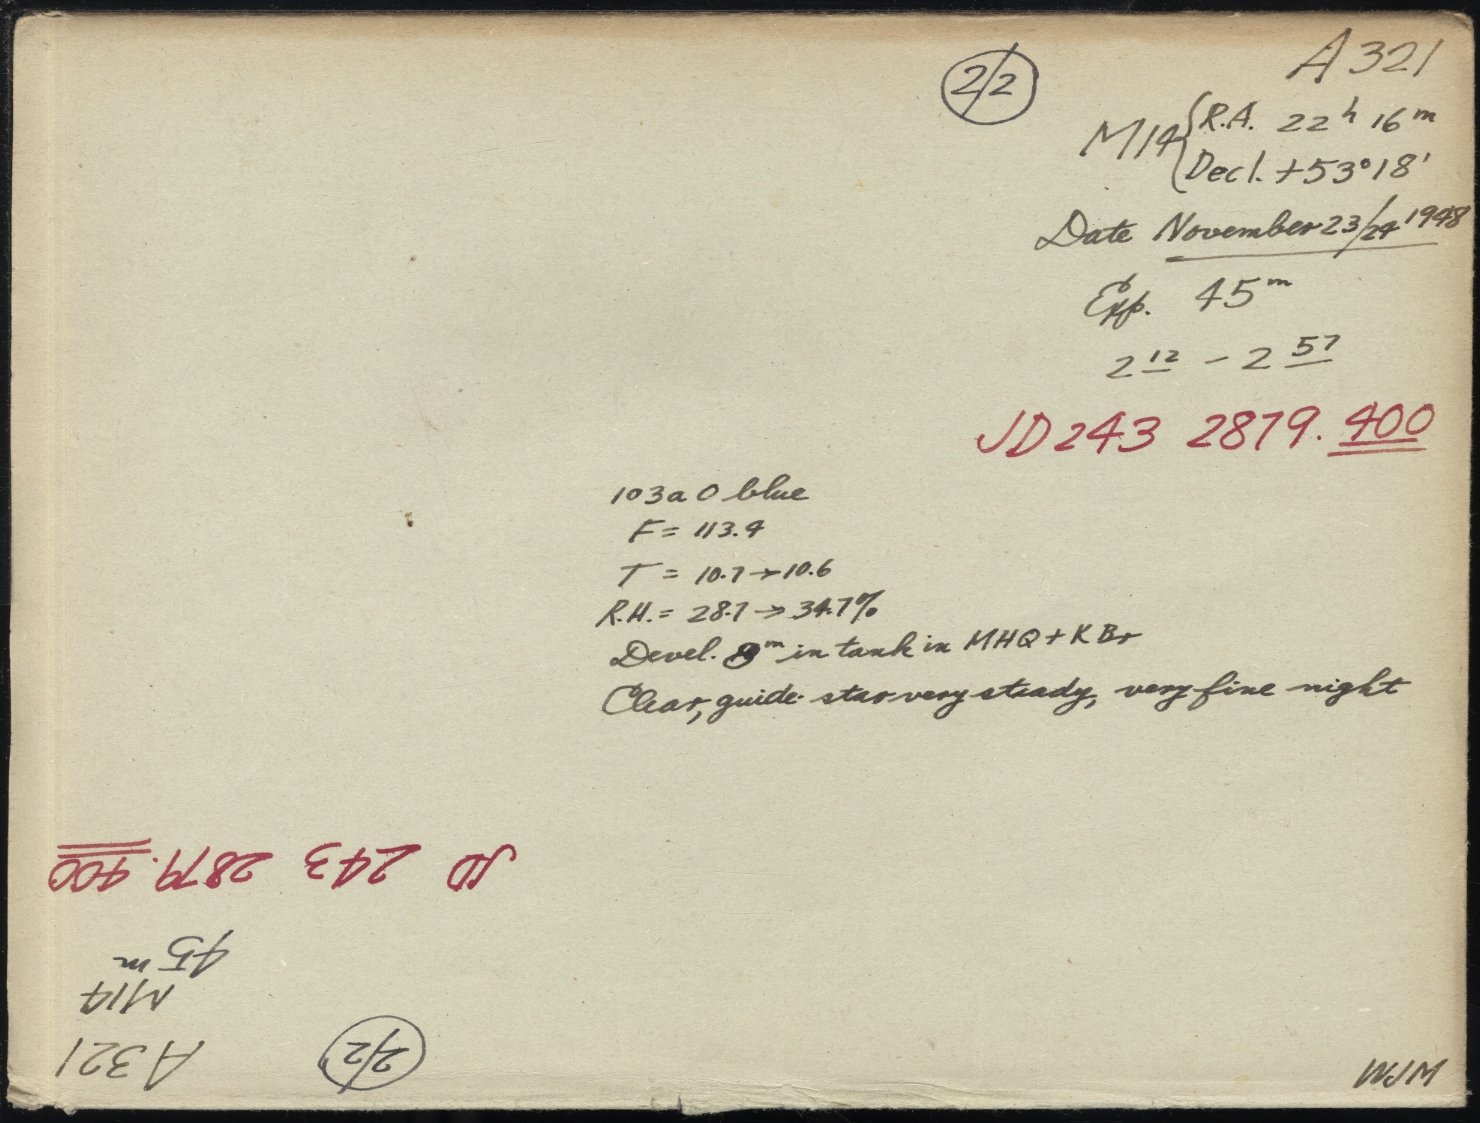 2/2
A 321
M14 { R.A. 22h 16m
Decl. +53°18'
Date November 23/24 1948
Exp. 45m
2 12 – 2 57
JD 243 2879.400
103a O blue
F = 113.4
T = 10.7 → 10.6
R.H. = 28.7 → 34.7%
Devel. 8m in tank in MHQ + KBr
Clear, guide star very steady, very fine night
JD 243 2879.400
45m
M14
A 321
2/2